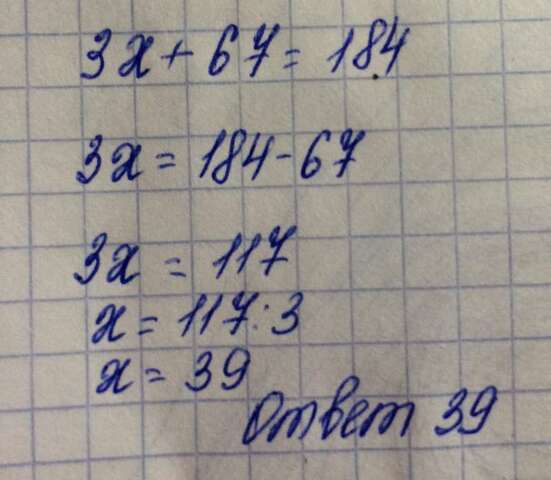 3x + 67 = 184
3x = 184 - 67
3x = 117
x = 117 : 3
x = 39
Ответ 39